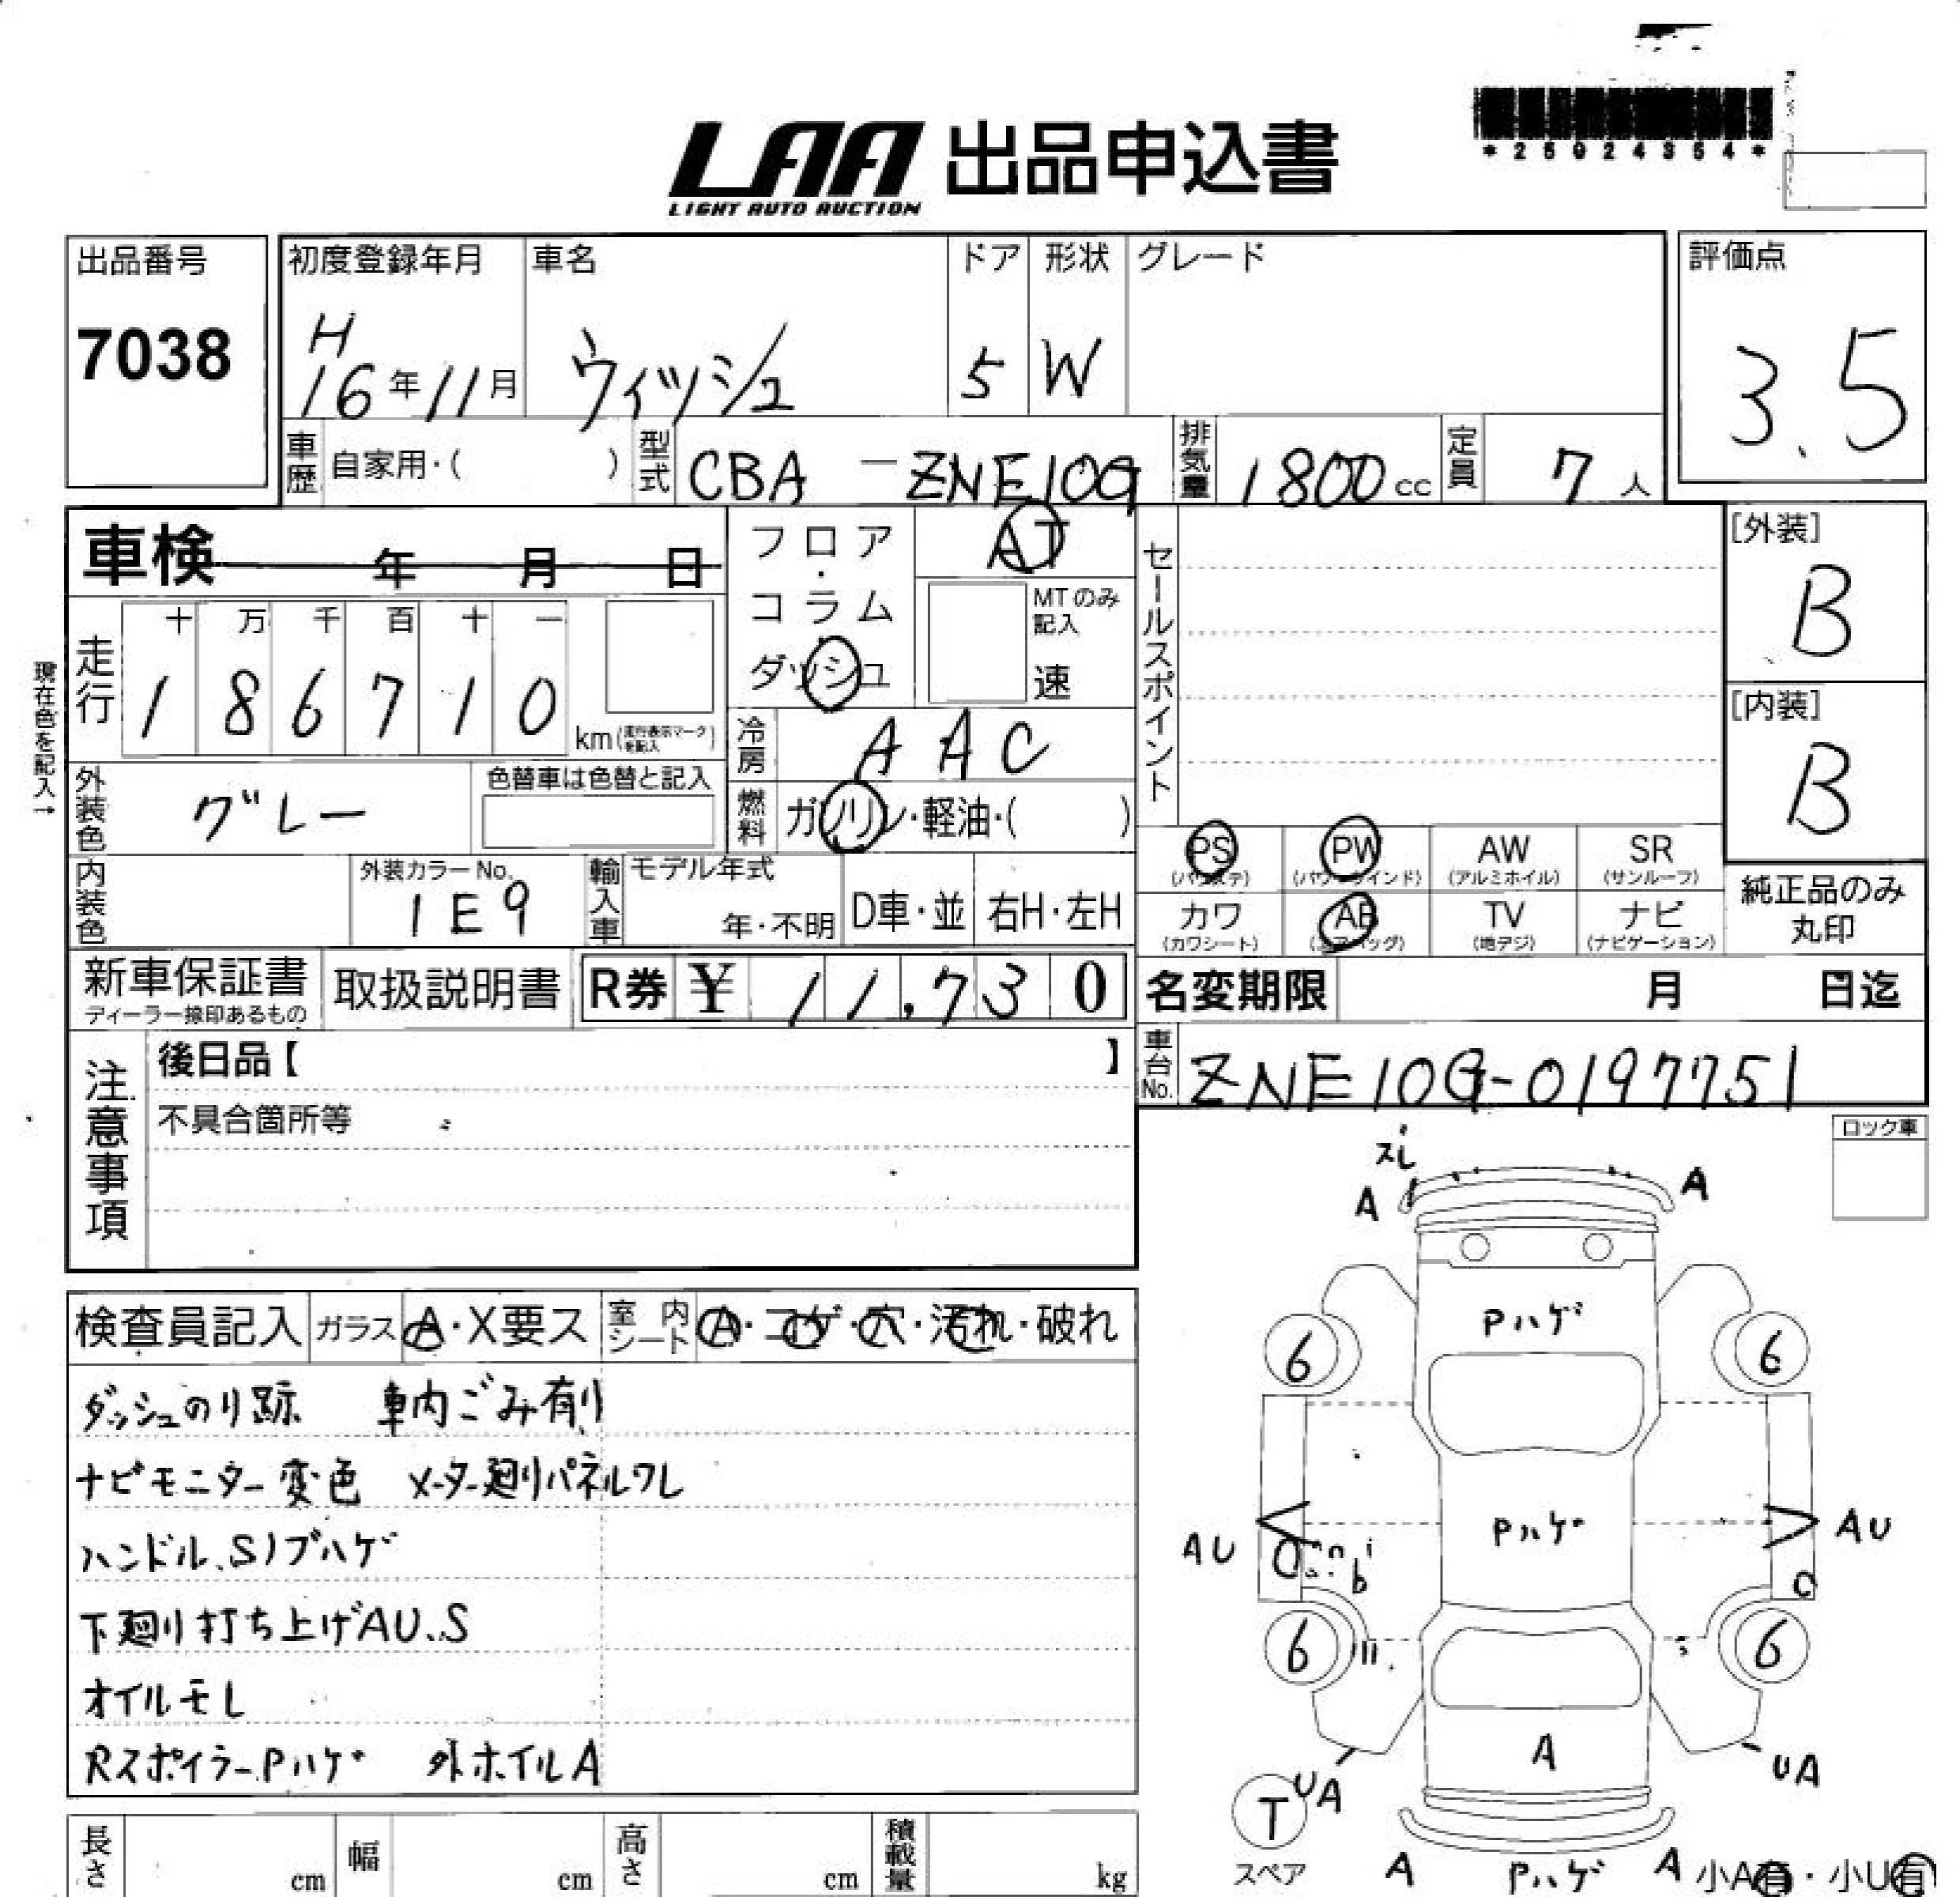 LAA 出品申込書
LIGHT AUTO AUCTION
*25024354*
出品番号
7038
初度登録年月
H
16年11月
車名
ウィッシュ
ドア
5
形状
W
グレード
評価点
3.5
車歴
自家用・( )
型式
CBA - ZNE10G
排気量
1800 cc
定員
7 人
車検 年 月 日
フロア・コラム・ダッシュ
AT
MTのみ記入
速
セールスポイント
[外装]
B
[内装]
B
現在色を記入→
走行
十 万 千 百 十 一
1 8 6 7 1 0
km(走行表示マークを記入)
冷房
AAC
外装色
グレー
色替車は色替と記入
燃料
ガソリン・軽油・( )
PS (パワステ)
PW (パワーウインド)
AW (アルミホイル)
SR (サンルーフ)
カワ (カワシート)
AB (エアバッグ)
TV (地デジ)
ナビ (ナビゲーション)
純正品のみ
丸印
内装色
外装カラーNo.
1E9
輸入車
モデル年式
年・不明
D車・並
右H・左H
新車保証書
ディーラー捺印あるもの
取扱説明書
R券 ¥ 11,730
名変期限 月 日迄
車台No.
ZNE10G-0197751
注意事項
後日品【 】
不具合箇所等
ロック車
検査員記入
ガラス
A・X要ス
室内シート
A・コゲ・穴・汚れ・破れ
ダッシュのり跡 車内ごみ有り
ナビモニター変色 メーター廻りパネルワレ
ハンドル、Sノブハゲ
下廻り打ち上げAU、S
オイルモレ
RスポイラーPハゲ 外ホイルA
スレ
A
A
Pハゲ
6
6
Pハゲ
AU
AU
6
6
A
UA
UA
T
スペア
A
Pハゲ
A
小A有・小U有
長さ cm
幅 cm
高さ cm
積載量 kg